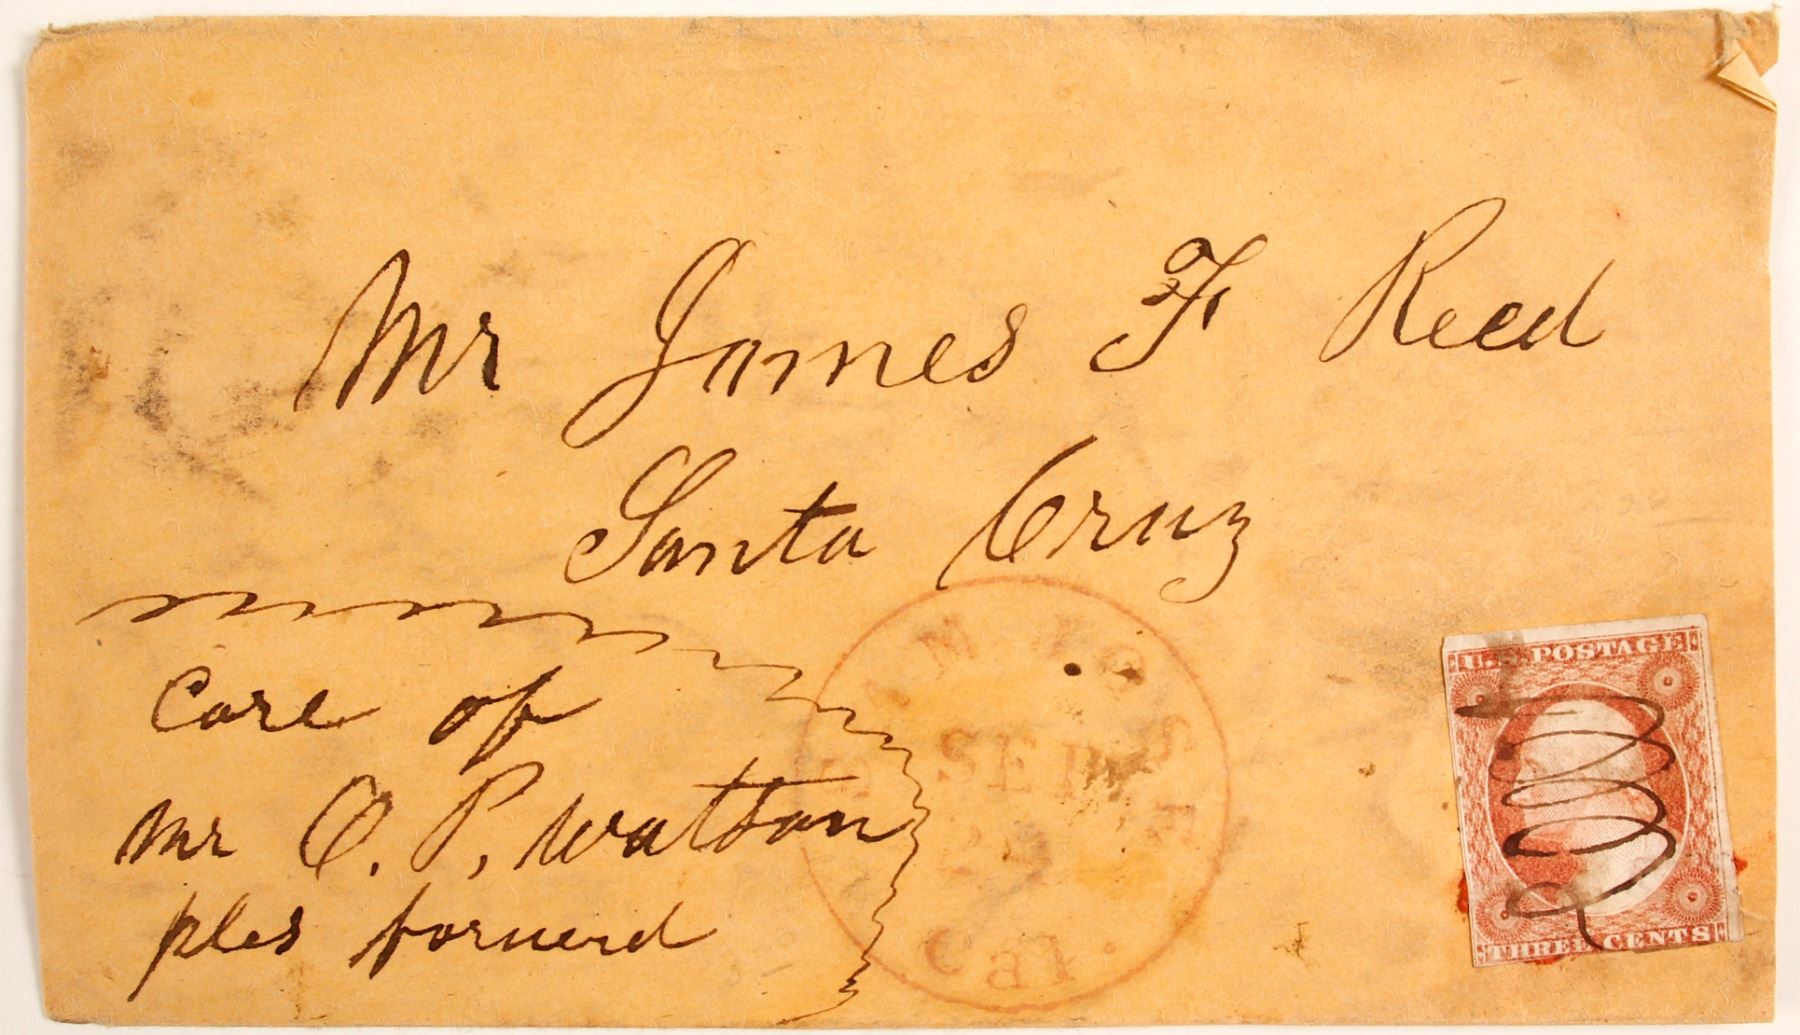 Mr James F Reed
Santa Cruz
Care of
mr O. P. Watson
ples forword
SAN JOSE
SEP
Cal.
U.S. POSTAGE
THREE CENTS